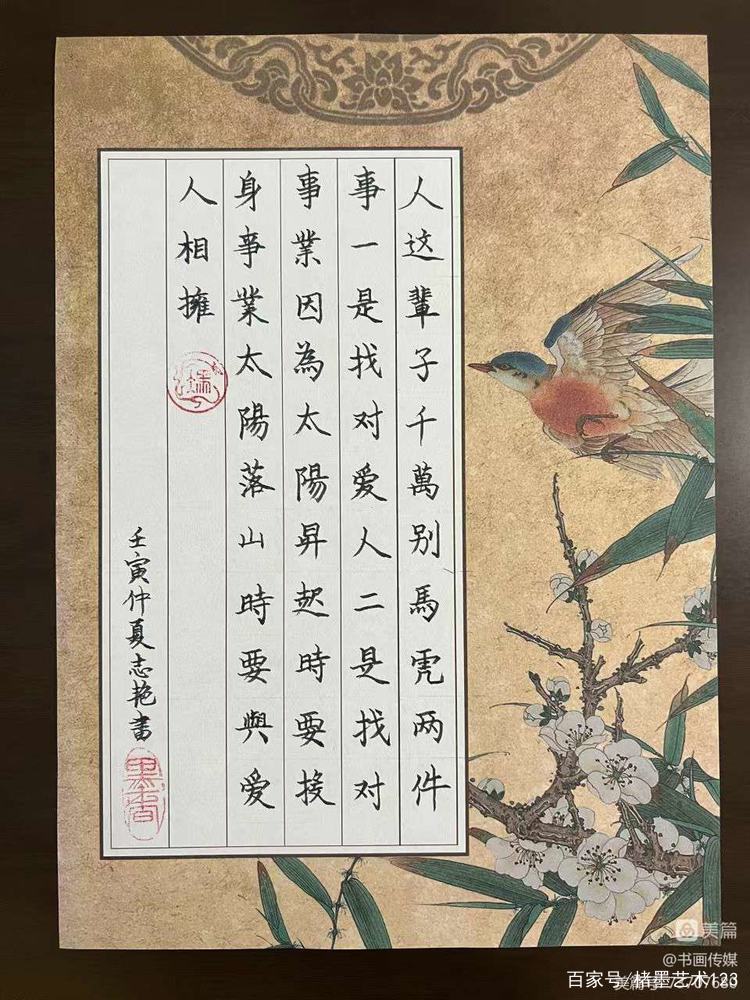 人这輩子千萬别馬虎两件
事一是找对爱人二是找对
事業因為太陽昇起時要投
身事業太陽落山時要與爱
人相擁
壬寅仲夏志艳書
墨香
美篇
@书画传媒
百家号/楮墨艺术123